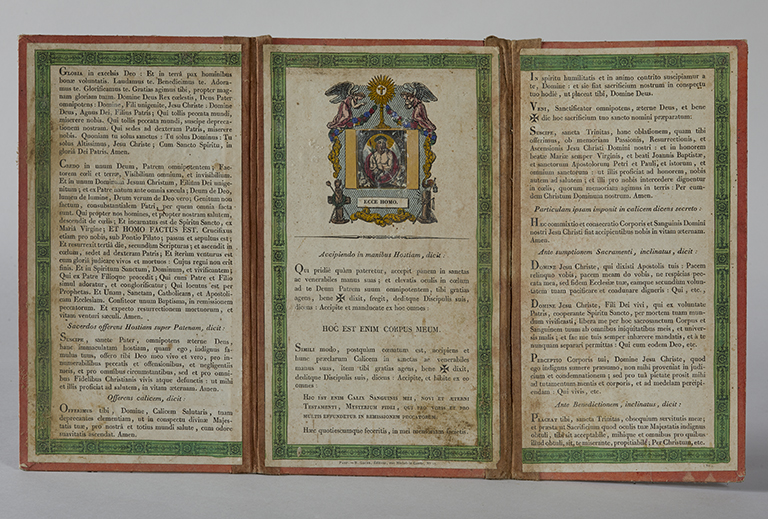 GLORIA in excelsis Deo : Et in terrâ pax hominibus
bonæ voluntatis. Laudamus te. Benedicimus te. Adora-
mus te. Glorificamus te. Gratias agimus tibi, propter mag-
nam gloriam tuam. Domine Deus Rex cœlestis, Deus Pater
omnipotens : Domine, Fili unigenite, Jesu Christe : Domine
Deus, Agnus Dei, Filius Patris; Qui tollis peccata mundi,
miserere nobis. Qui tollis peccata mundi, suscipe depreca-
tionem nostram. Qui sedes ad dexteram Patris, miserere
nobis. Quoniam tu solus sanctus : Tu solus Dominus : Tu
solus Altissimus, Jesu Christe ; Cum Sancto Spiritu, in
gloriâ Dei Patris. Amen.
CREDO in unum Deum, Patrem omnipotentem ; Fac-
torem cœli et terræ, Visibilium omnium, et invisibilium.
Et in unum Dominum Jesum Christum, Filium Dei unige-
nitum ; et ex Patre natum ante omnia sæcula ; Deum de Deo,
lumen de lumine, Deum verum de Deo vero; Genitum non
factum, consubstantialem Patri, per quem omnia facta
sunt. Qui propter nos homines, et propter nostram salutem,
descendit de cœlis ; Et incarnatus est de Spiritu Sancto, ex
Mariâ Virgine ; ET HOMO FACTUS EST. Crucifixus
etiam pro nobis, sub Pontio Pilato; passus et sepultus est;
Et resurrexit tertiâ die, secundum Scripturas ; et ascendit in
cœlum, sedet ad dexteram Patris ; Et iterum venturus est
cum gloriâ judicare vivos et mortuos : Cujus regni non erit
finis. Et in Spiritum Sanctum, Dominum, et vivificantem ;
Qui ex Patre Filioque procedit ; Qui cum Patre et Filio
simul adoratur, et conglorificatur; Qui locutus est per
Prophetas. Et Unam, Sanctam, Catholicam, et Apostoli-
cam Ecclesiam. Confiteor unum Baptisma, in remissionem
peccatorum. Et expecto resurrectionem mortuorum, et
vitam venturi sæculi. Amen.
Sacerdos offerens Hostiam super Patenam, dicit :
SUSCIPE, sancte Pater, omnipotens æterne Deus,
hanc immaculatam hostiam, quam ego, indignus fa-
mulus tuus, offero tibi Deo meo vivo et vero, pro in-
numerabilibus peccatis et offensionibus, et negligentiis
meis, et pro omnibus circumstantibus, sed et pro omni-
bus Fidelibus Christianis vivis atque defunctis : ut mihi
et illis proficiat ad salutem, in vitam æternam. Amen.
Offerens calicem, dicit :
OFFERIMUS tibi, Domine, Calicem Salutaris, tuam
deprecantes clementiam, ut in conspectu divinæ Majes-
tatis tuæ, pro nostrâ et totius mundi salute, cum odore
suavitatis ascendat. Amen.
ECCE HOMO.
Accipiendo in manibus Hostiam, dicit :
QUI pridiè quàm pateretur, accepit panem in sanctas
ac venerabiles manus suas ; et elevatis oculis in cœlum
ad te Deum Patrem suum omnipotentem, tibi gratias
agens, bene ✠ dixit, fregit, deditque Discipulis suis,
dicens : Accipite et manducate ex hoc omnes :
HOC EST ENIM CORPUS MEUM.
SIMILI modo, postquàm cœnatum est, accipiens et
hunc præclarum Calicem in sanctas ac venerabiles
manus suas, item tibi gratias agens, bene ✠ dixit,
deditque Discipulis suis, dicens : Accipite, et bibite ex eo
omnes :
HIC EST ENIM CALIX SANGUINIS MEI, NOVI ET ÆTERNI
TESTAMENTI, MYSTERIUM FIDEI, QUI PRO VOBIS ET PRO
MULTIS EFFUNDETUR IN REMISSIONEM PECCATORUM.
Hæc quotiescumque feceritis, in mei memoriam facietis.
IN spiritu humilitatis et in animo contrito suscipiamur a
te, Domine : et sic fiat sacrificium nostrum in conspectu
tuo hodiè, ut placeat tibi, Domine Deus.
VENI, Sanctificator omnipotens, æterne Deus, et bene
✠ dic hoc sacrificium tuo sancto nomini præparatum.
SUSCIPE, sancta Trinitas, hanc oblationem, quam tibi
offerimus, ob memoriam Passionis, Resurrectionis, et
Ascensionis Jesu Christi Domini nostri : et in honorem
beatæ Mariæ semper Virginis, et beati Joannis Baptistæ,
et sanctorum Apostolorum Petri et Pauli, et istorum, et
omnium sanctorum : ut illis proficiat ad honorem, nobis
autem ad salutem ; et illi pro nobis intercedere dignentur
in cœlis, quorum memoriam agimus in terris : Per eum-
dem Christum Dominum nostrum. Amen.
Particulam ipsam imponit in calicem dicens secretò :
HÆC commixtio et consecratio Corporis et Sanguinis Domini
nostri Jesu Christi fiat accipientibus nobis in vitam æternam.
Amen.
Ante sumptionem Sacramenti, inclinatus, dicit :
DOMINE Jesu Christe, qui dixisti Apostolis tuis : Pacem
relinquo vobis, pacem meam do vobis, ne respicias pec-
cata mea, sed fidem Ecclesiæ tuæ, eamque secundùm volun-
tatem tuam pacificare et coadunare digneris : Qui, etc.
DOMINE Jesu Christe, Fili Dei vivi, qui ex voluntate
Patris, cooperante Spiritu Sancto, per mortem tuam mun-
dum vivificasti, libera me per hoc sacrosanctum Corpus et
Sanguinem tuum ab omnibus iniquitatibus meis, et univer-
sis malis ; et fac me tuis semper inhærere mandatis, et à te
nunquam separari permittas : Qui cum eodem Deo, etc.
PERCEPTIO Corporis tui, Domine Jesu Christe, quod
ego indignus sumere præsumo, non mihi proveniat in judi-
cium et condemnationem ; sed pro tuâ pietate prosit mihi
ad tutamentum mentis et corporis, et ad medelam percipi-
endam : Qui vivis, etc.
Ante Benedictionem, inclinatus, dicit :
PLACEAT tibi, sancta Trinitas, obsequium servitutis meæ ;
et præsta ut Sacrificium quod oculis tuæ Majestatis indignus
obtuli, tibi sit acceptabile, mihique et omnibus pro quibus
illud obtuli, sit, te miserante, propitiabile : Per Christum, etc.